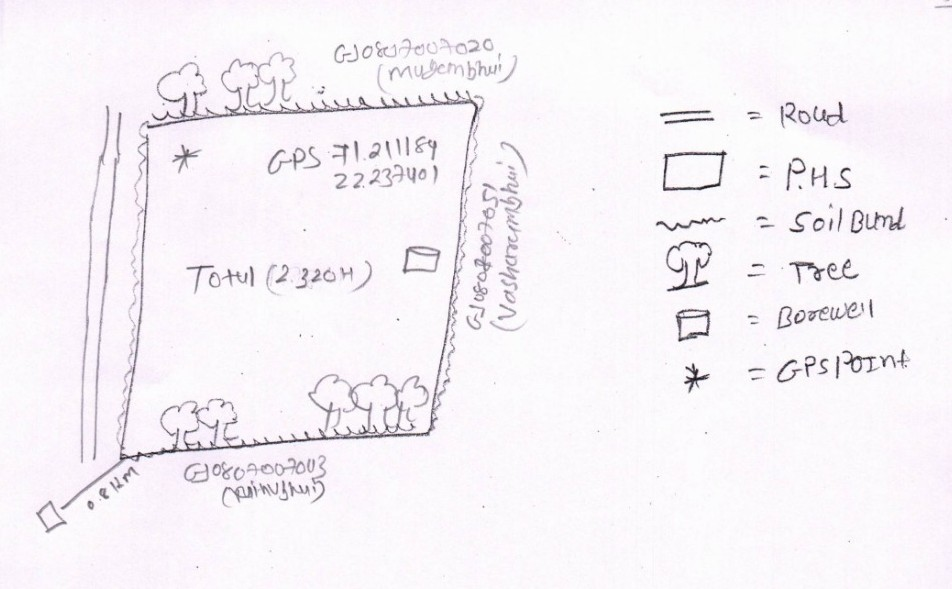 GJ0807007020
GPS 71.211184
22.237401
Total (2.320H)
GJ0807007051
GJ0807007003
0.8 KM
= Road
= P.H.S
= Soil Bund
= Tree
= Borewell
= GPS POINT